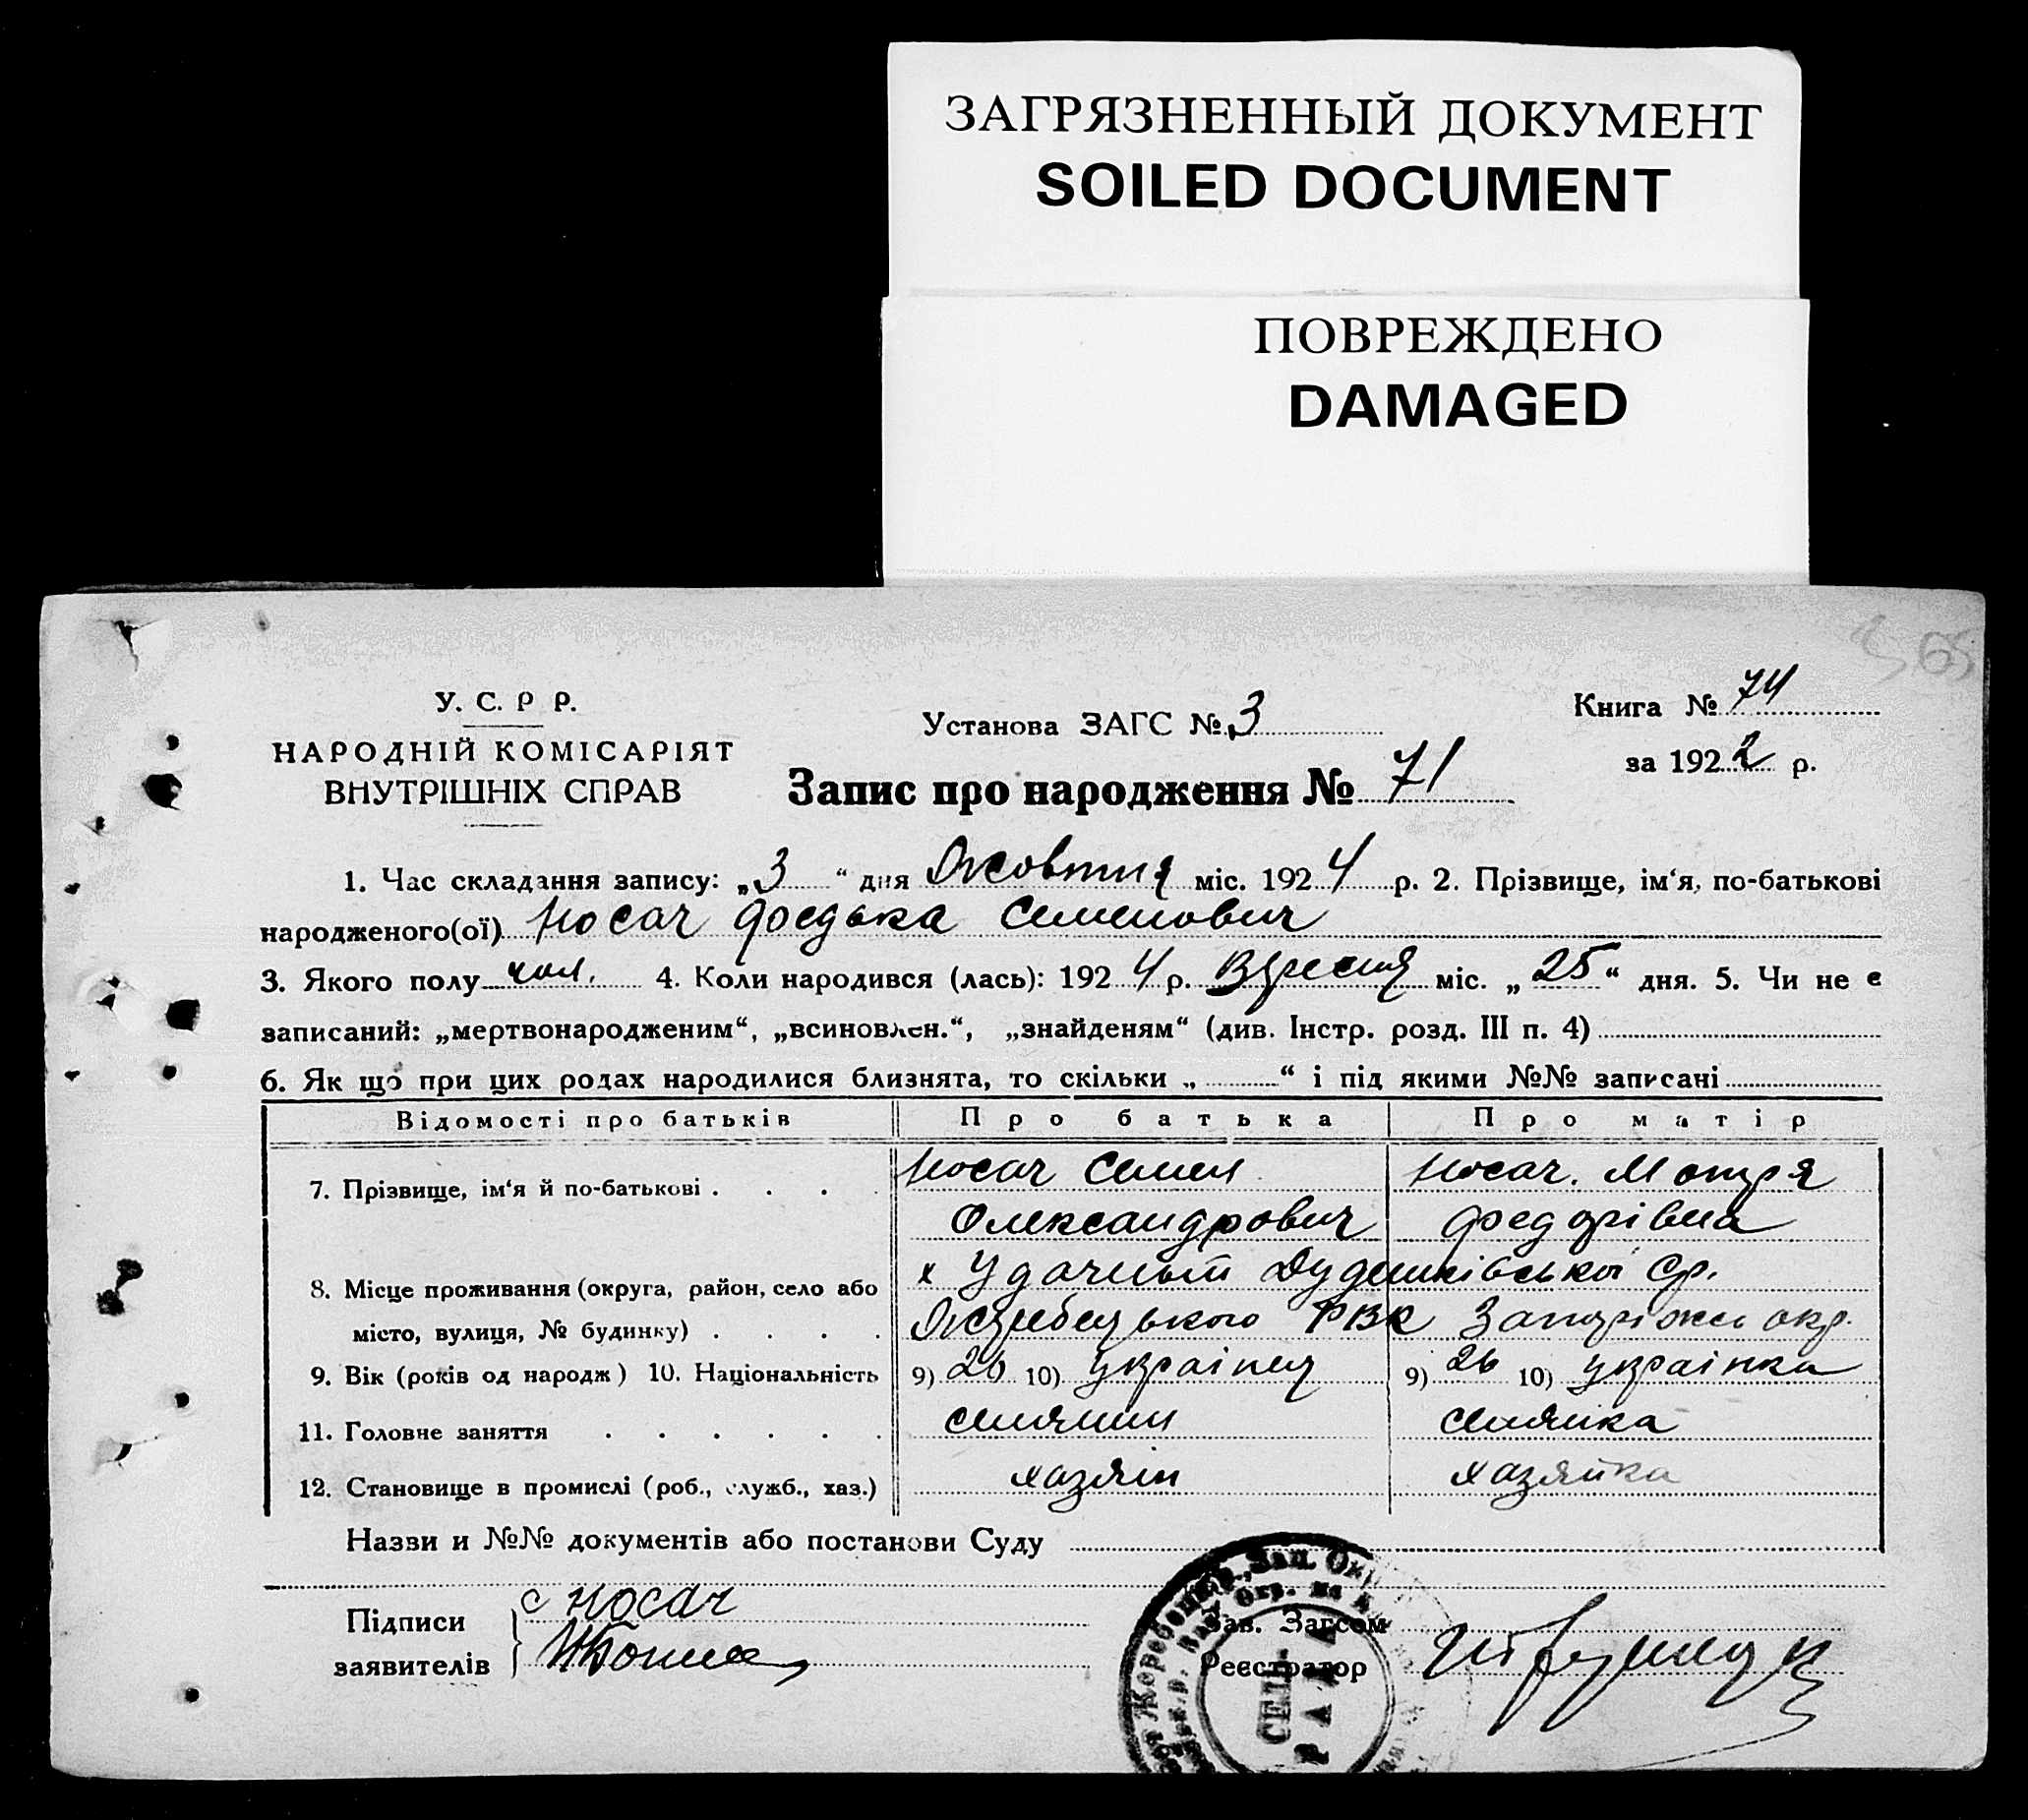 ЗАГРЯЗНЕННЫЙ ДОКУМЕНТ
SOILED DOCUMENT
ПОВРЕЖДЕНО
DAMAGED
65
У. С. Р Р.
НАРОДНІЙ КОМІСАРІЯТ
ВНУТРІШНІХ СПРАВ
Установа ЗАГС № 3
Книга № 74
за 1922 р.
Запис про народження № 71
1. Час складання запису: „3“ дня Жовтня міс. 1924 р. 2. Прізвище, ім‘я, по-батькові
народженого(ої) Носач Федька Семенович
3. Якого полу чол. 4. Коли народився (лась): 1924 р. Вересня міс. „25“ дня. 5. Чи не є
записаний: „мертвонародженим“, „всиновлен.“, „знайденям“ (див. Інстр. розд. III п. 4)
6. Як що при цих родах народилися близнята, то скільки „ “ і під якими №№ записані
Відомості про батьків Про батька Про матір
7. Прізвище, ім‘я й по-батькові . . . . Носач Семен Носач. Мотря
Олександрович Федорівна
8. Місце проживання (округа, район, село або х Удачный Ср.
місто, вулиця, № будинку) . . . . Жеребецького РВК Запоріжсь окр.
9. Вік (років од народж) 10. Національність 9) 26 10) українець 9) 26 10) українка
11. Головне заняття . . . . . . селянин селянка
12. Становище в промислі (роб., служб., хаз.) хазяін хазяйка
Назви и №№ документів або постанови Суду
Підписи с Носач
заявителів
Зав. Загсом
Реєстратор
СЕЛЬ-
РАДА